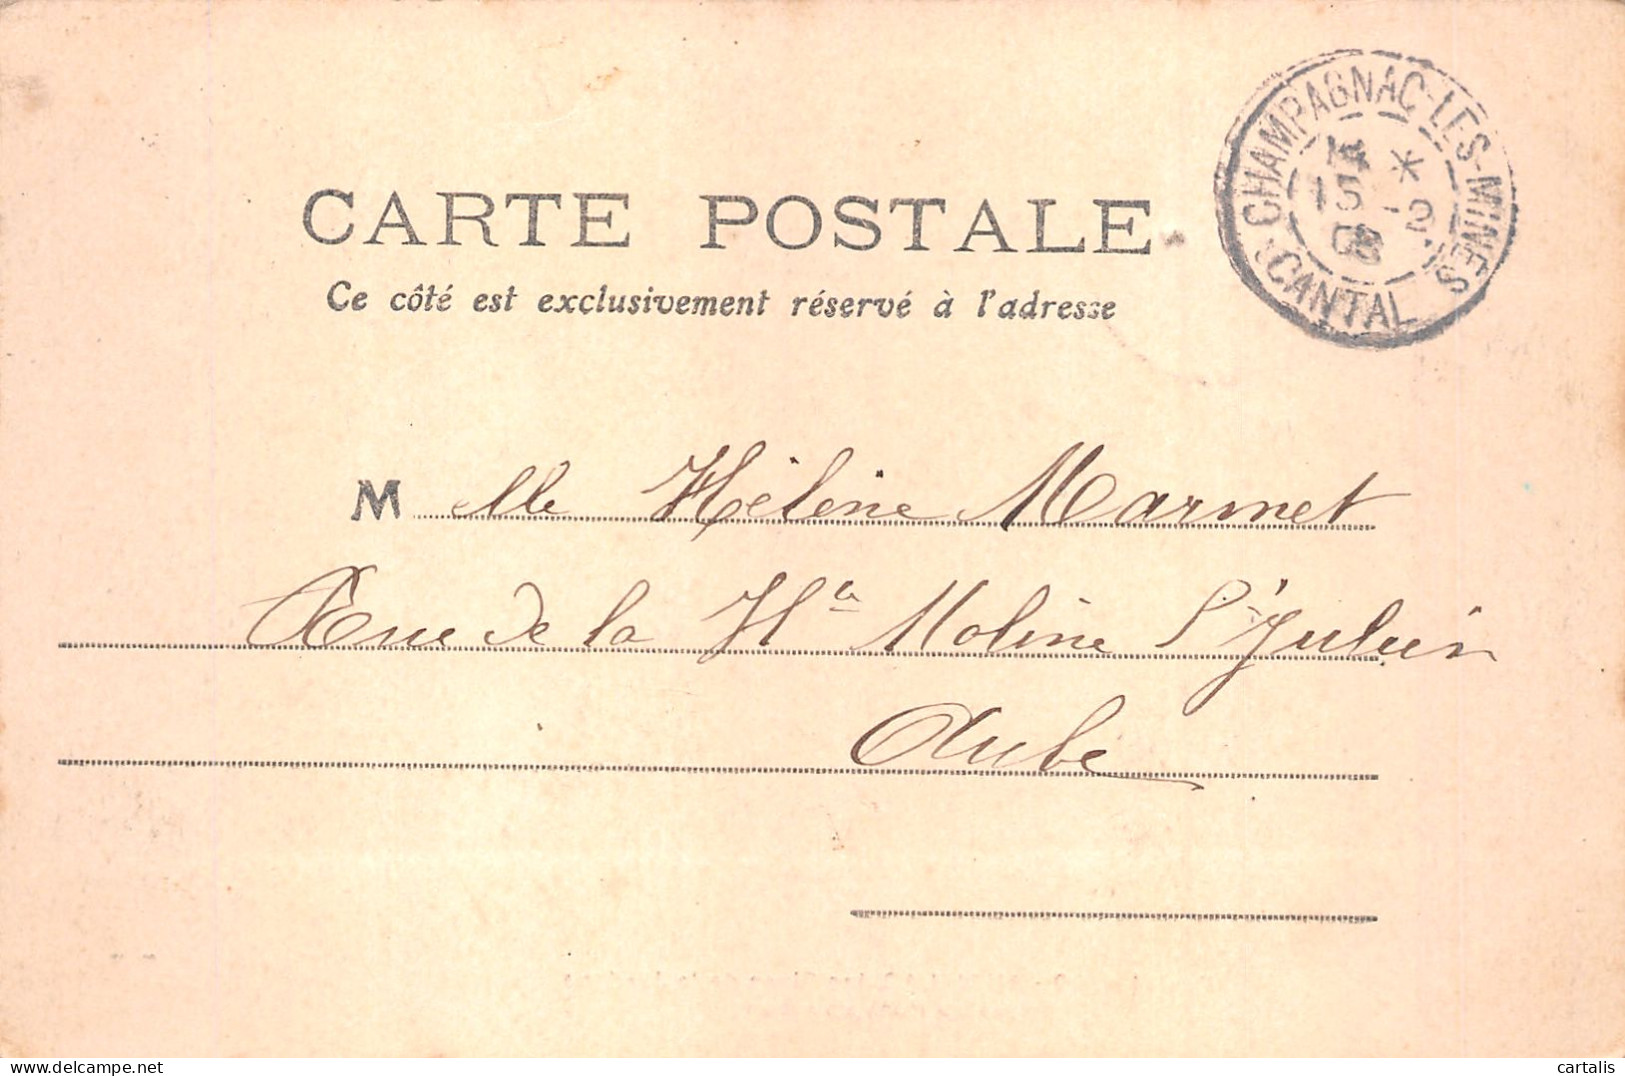 CARTE POSTALE
Ce côté est exclusivement réservé à l'adresse
CHAMPAGNAC-LES-MINES
14 *
15 -2
03
CANTAL
Melle Hélène Marmet
Rue de la Hte Moline St Julien
Aube
cartalis
delcampe.net